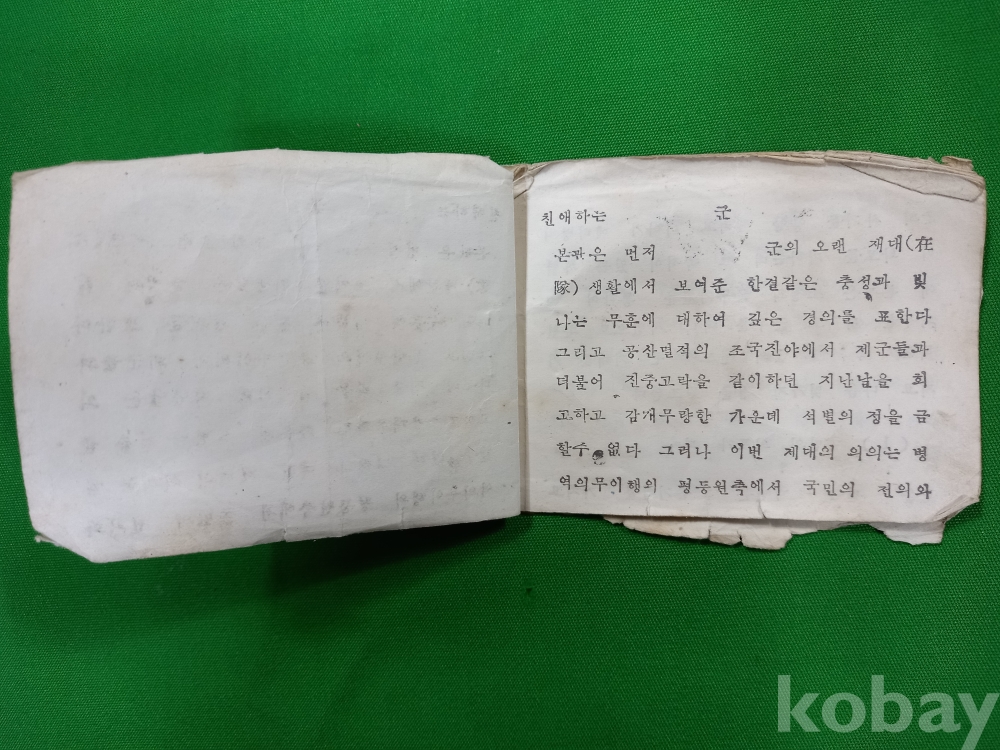 친애하는 군
본관은 먼저 군의 오랜 재대(在
隊) 생활에서 보여준 한결같은 충성과 빛
나는 무훈에 대하여 깊은 경의를 표한다
그리고 공산멸적의 조국진야에서 제군들과
더불어 진중고락을 같이하던 지난날을 회
고하고 감개무량한 가운데 석별의 정을 금
할수 없다 그러나 이번 제대의 의의는 병
역의무이행의 평등원측에서 국민의 전의와
kobay